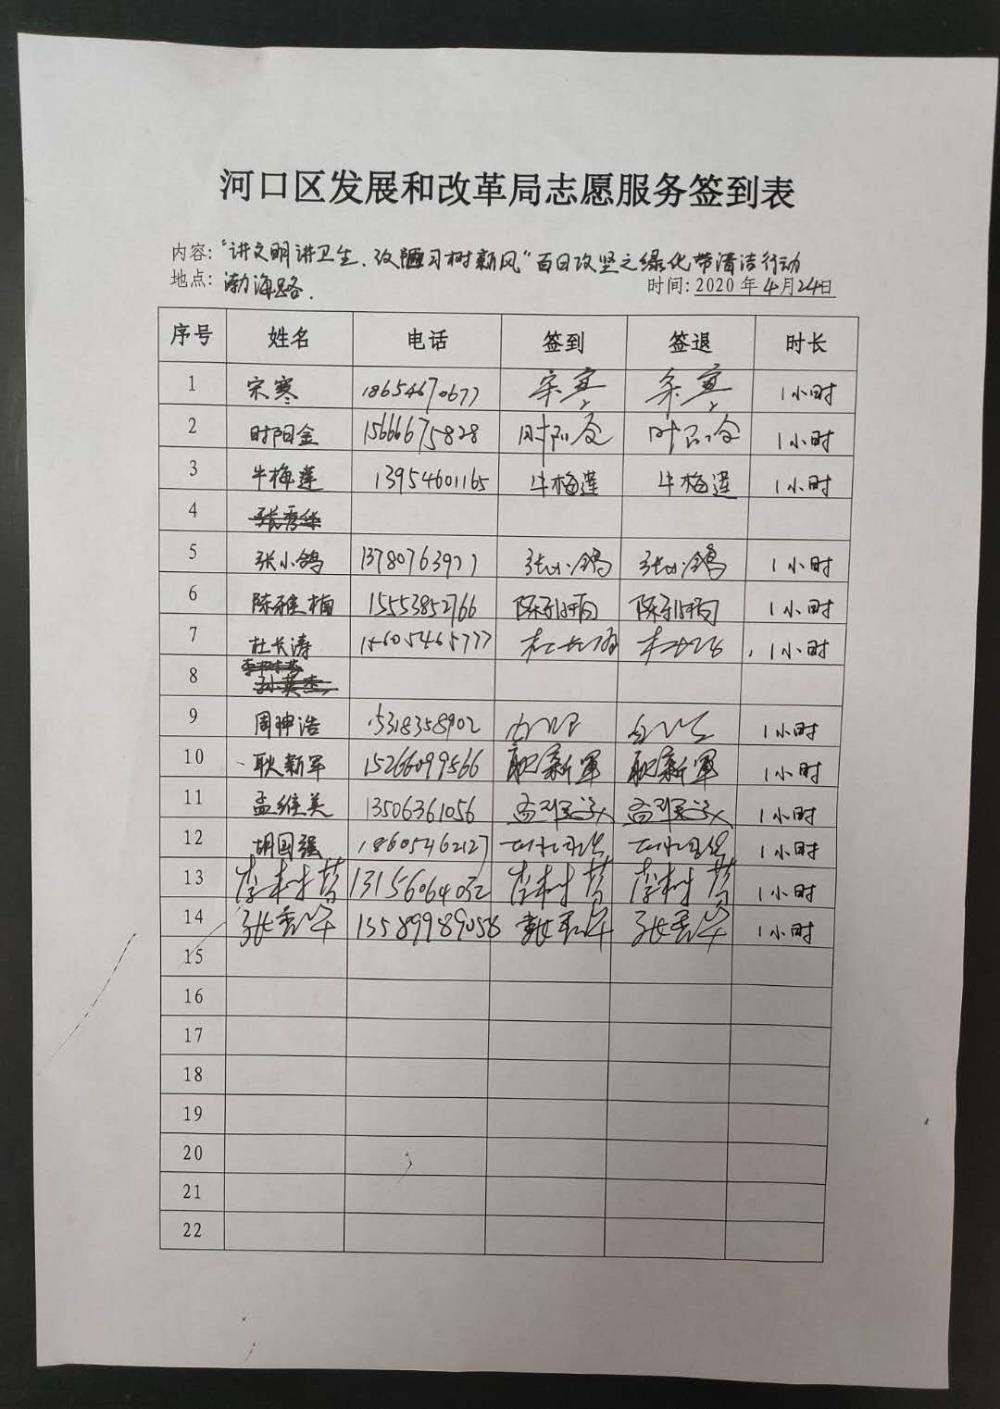 河口区发展和改革局志愿服务签到表
内容:“讲文明讲卫生、改陋习树新风”百日攻坚之绿化带清洁行动
地点: 渤海路. 时间: 2020 年 4月24日
序号 姓名 电话 签到 签退 时长
1 宋寒 18654670677 宋寒 宋寒 1小时
2 时阳金 15666675828 1小时
3 牛梅莲 13954601165 牛梅莲 牛梅莲 1小时
4 张秀华
5 张小鸽 13780763977 张小鸽 张小鸽 1小时
6 陈雅楠 15553852766 陈雅楠 陈雅楠 1小时
7 杜长涛 15605465777 杜长涛 1小时
8
9 周翀浩 15318358902 1小时
10 耿新军 15266099566 耿新军 耿新军 1小时
11 孟维美 13506361056 孟维美 孟维美 1小时
12 胡国强 18605462127 1小时
13 13156064032 1小时
14 张秀华 13589989058 张秀华 张秀华 1小时
15
16
17
18
19
20
21
22